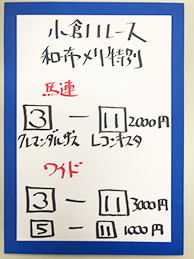 小倉11レース
和布刈特別
馬連
3 ー 11 2000円
クルマンダルザス レコンキスタ
ワイド
3 ー 11 3000円
5 ー 11 1000円